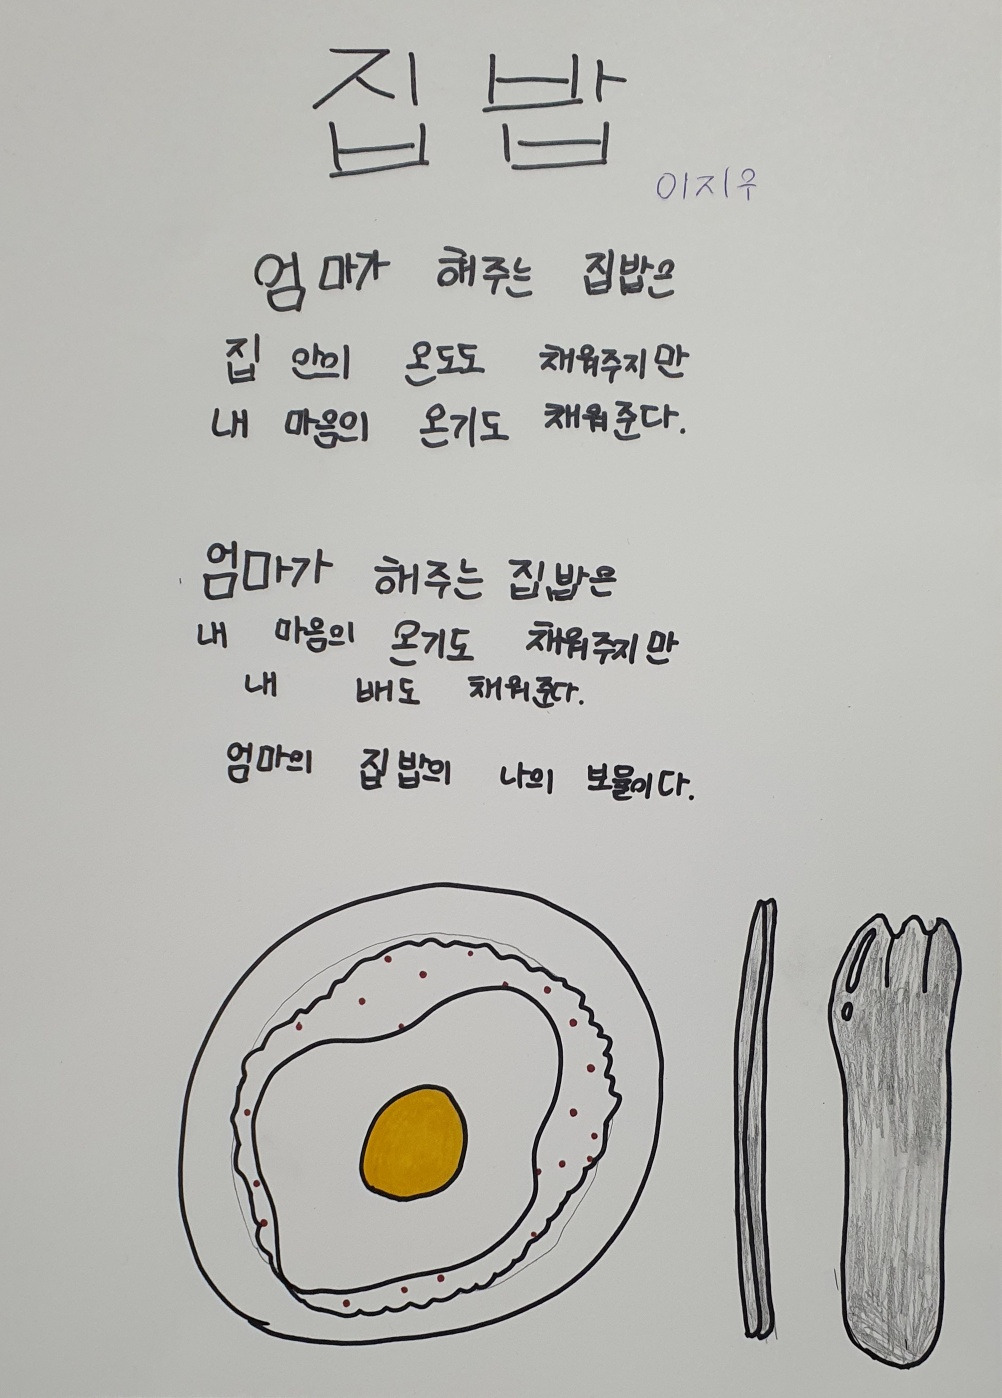 집밥
이지우
엄마가 해주는 집밥은
집 안의 온도도 채워주지만
내 마음의 온기도 채워준다.
엄마가 해주는 집밥은
내 마음의 온기도 채워주지만
내 배도 채워준다.
엄마의 집밥의 나의 보물이다.